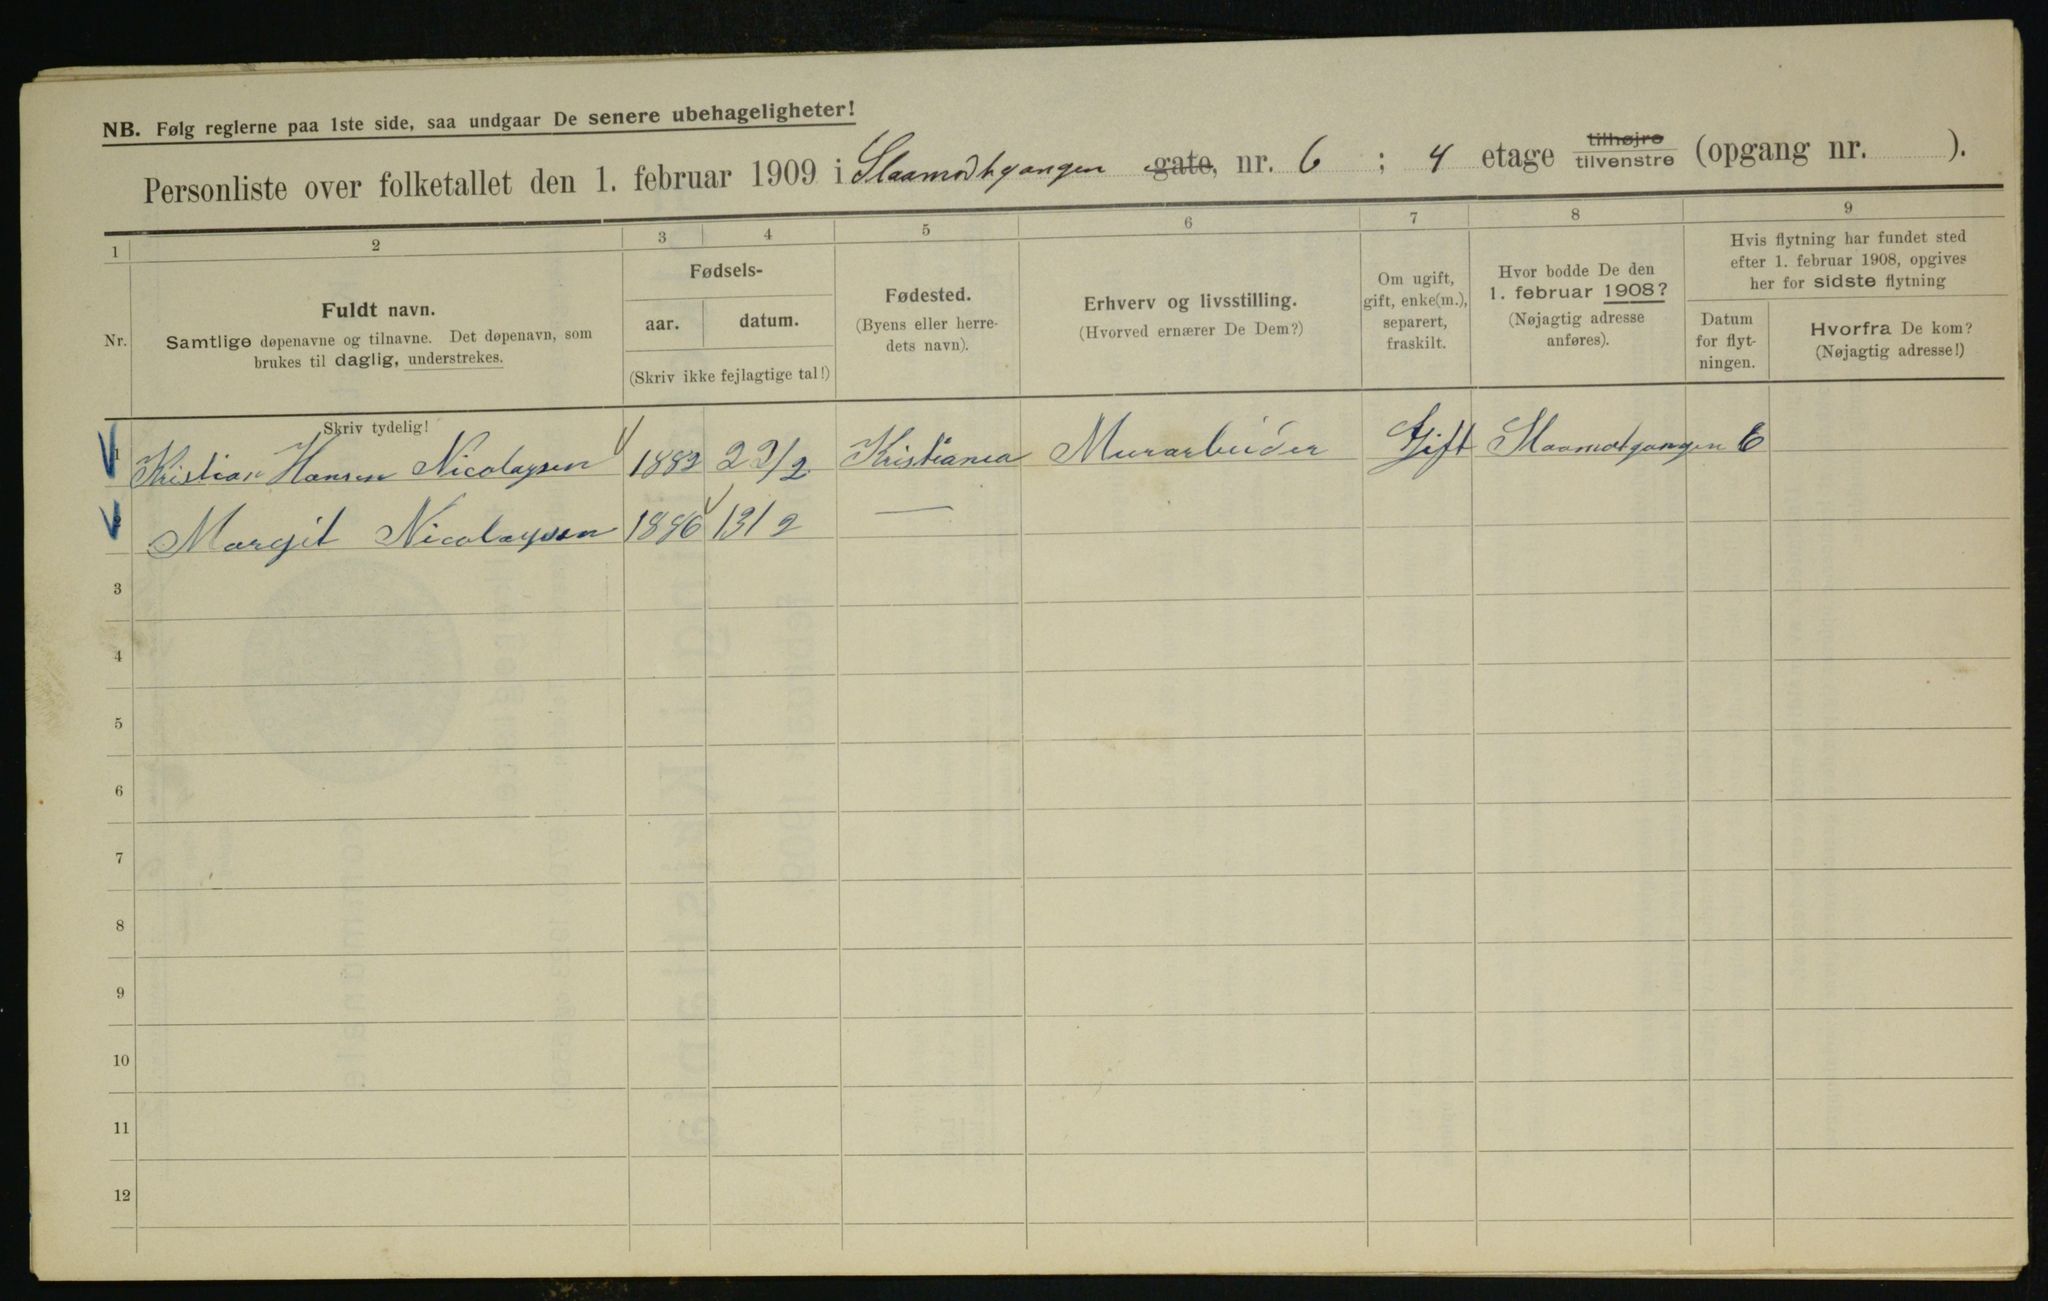 NB. Følg reglerne paa 1ste side, saa undgaar De senere ubehageligheter!
Personliste over folketallet den 1. februar 1909 i Slaamotgangen gate, nr. 6 ; 4 etage tilhøjre tilvenstre (opgang nr. ).
1 2 3 4 5 6 7 8 9
Nr.
Fuldt navn.
Samtlige døpenavne og tilnavne. Det døpenavn, som
brukes til daglig, understrekes.
Fødsels-
aar. datum.
(Skriv ikke fejlagtige tal!)
Fødested.
(Byens eller herre-
dets navn).
Erhverv og livsstilling.
(Hvorved ernærer De Dem?)
Om ugift,
gift, enke(m.),
separert,
fraskilt.
Hvor bodde De den
1. februar 1908?
(Nøjagtig adresse
anføres).
Hvis flytning har fundet sted
efter 1. februar 1908, opgives
her for sidste flytning
Datum
for flyt-
ningen.
Hvorfra De kom?
(Nøjagtig adresse!)
Skriv tydelig!
1 Kristian Hansen Nicolaysen 1882 22/2 Kristiania Murarbeider Gift Slaamotgangen 6
2 Margit Nicolaysen 1886 13/2 —
3
4
5
6
7
8
9
10
11
12